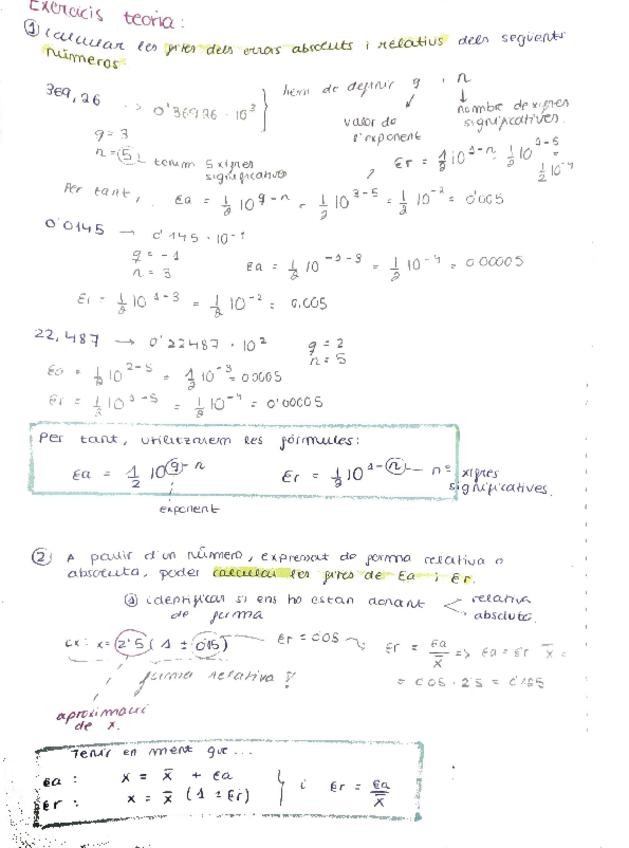 Exercicis teoria:
① calcular les fites dels erros absoluts i relatius dels següents
números
369,26 --> 0'36926 · 10³ } hem de definir q i n
q = 3
n = 5 tenim 5 xifres
significatives
valor de
l'exponent
nombre de xifres
significatives.
Er = 1/2 10^(1-n) = 1/2 10^(1-5) = 1/2 10^-4
Per tant, Ea = 1/2 10^(q-n) = 1/2 10^(3-5) = 1/2 10^-2 = 0'005
0'0145 → 0'145 · 10^-1
q = -1
n = 3
Ea = 1/2 10^(-1-3) = 1/2 10^-4 = 0.00005
Er = 1/2 10^(1-3) = 1/2 10^-2 = 0.005
22,487 → 0'22487 · 10² q = 2
n = 5
Ea = 1/2 10^(2-5) = 1/2 10^-3 = 0.0005
Er = 1/2 10^(1-5) = 1/2 10^-4 = 0'00005
Per tant, utilitzarem les fórmules:
Ea = 1/2 10^(q-n) Er = 1/2 10^(1-n) — nº xifres
significatives.
exponent
② A partir d'un número, expressat de forma relativa o
absoluta, poder calcular les fites de Ea i Er.
① identificar si ens ho estan donant < relativa
de forma absoluta.
ex: x = 2'5 (1 ± 0'05) Er = 0'05 Er = Ea/x̄ => Ea = Er x̄ =
forma relativa! = 0'05 · 2'5 = 0'125
aproximació
de x.
Tenir en ment que...
Ea: x = x̄ ± Ea } i Er = Ea/x̄
Er: x = x̄ (1 ± Er)